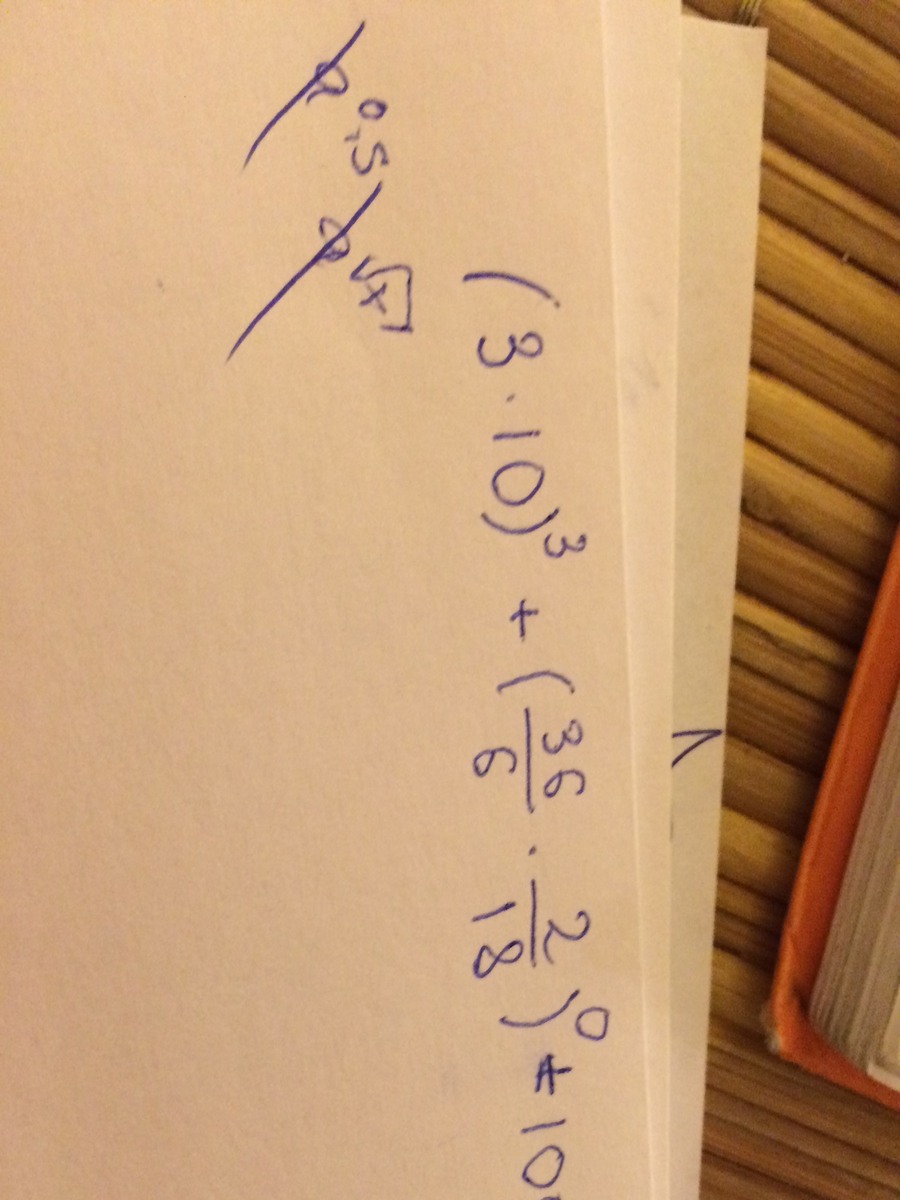 (3 · 10)³ + (36/6 · 2/18)⁰ + 10